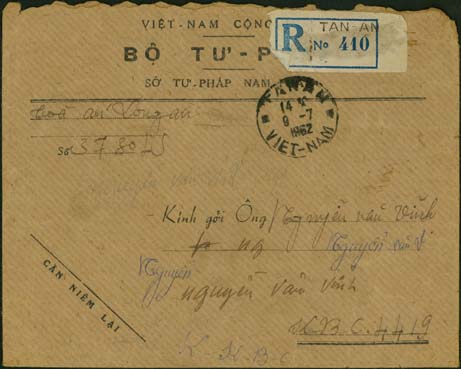 VIỆT-NAM CỘNG
BỘ TƯ-P
SỞ TƯ-PHÁP NAM-
TAN-AN
R No 410
TAN-AN
14
9 -7
1962
VIET-NAM
Toà án Long an
Số 3780 LS
nguyễn văn
Kính gởi Ông/ Nguyễn văn Vinh
ng Nguyễn văn V
Nguyễn
nguyễn văn Vinh
CẦN NIÊM LẠI
K.B.C. 4419
K - K.B.C